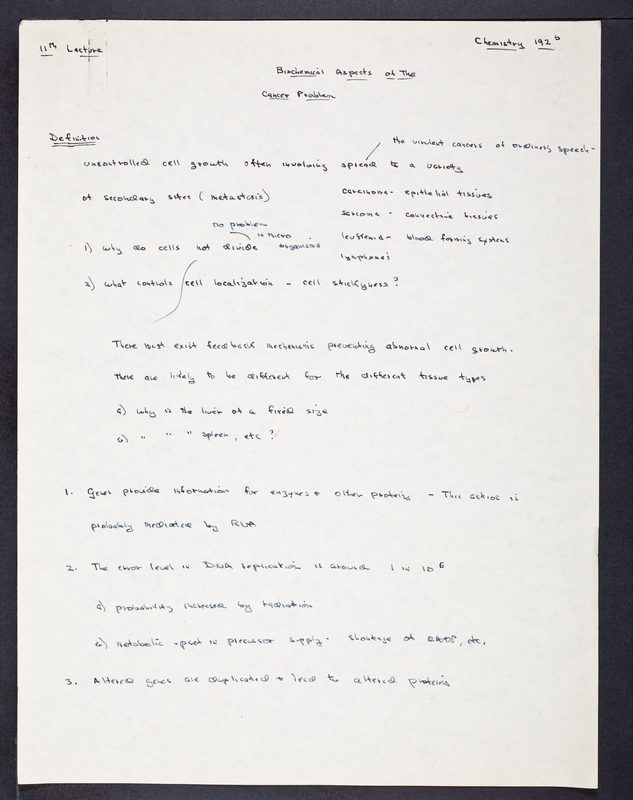 11th Lecture
Chemistry 192 b
Biochemical Aspects of The
Cancer Problem
Definition
the virulent cancers of ordinary speech -
uncontrolled cell growth often involving spread to a variety
of secondary sites (metastosis)
carcinoma - epithelial tissues
sarcoma - connective tissues
leukemia - blood forming systems
lymphomas
no problem
in micro
organisms
1) why do cells not divide
2) what controls cell localization - cell stickyness?
There must exist feedback mechanisms preventing abnormal cell growth.
these are likely to be different for the different tissue types
a) why is the liver of a fixed size
b) " " " spleen, etc?
1. Genes provide information for enzymes + other proteins - This action is
probably mediated by RNA
2. The error level in DNA replication is around 1 in 10 6
a) probability increased by radiation
b) metabolic upset in precursor supply - shortage of etc.
3. Altered genes are duplicated + lead to altered proteins